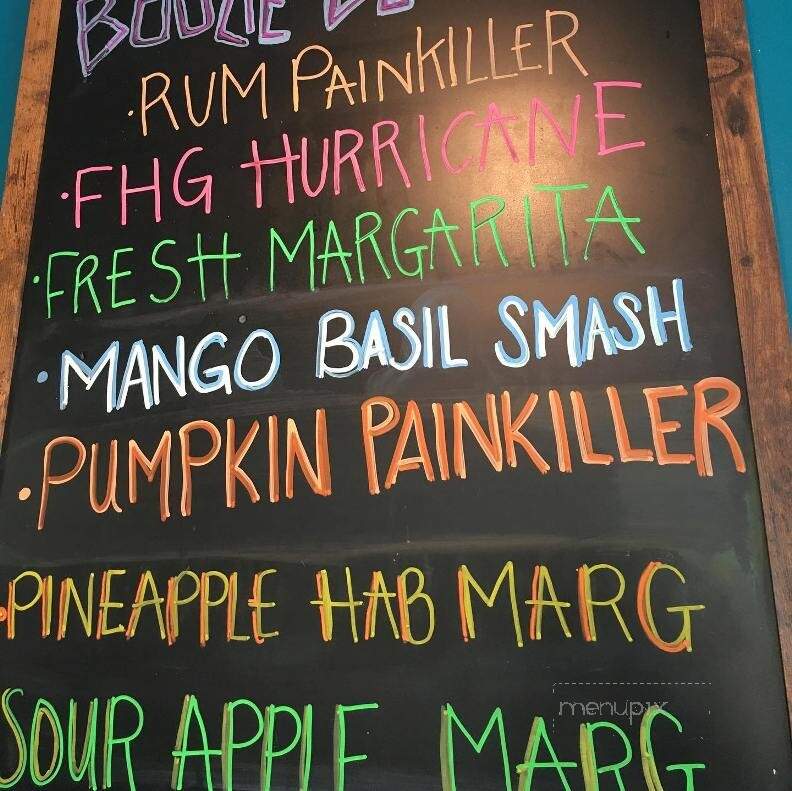 BOOZIE
• RUM PAINKILLER
• FHG HURRICANE
• FRESH MARGARITA
• MANGO BASIL SMASH
• PUMPKIN PAINKILLER
• PINEAPPLE HAB MARG
SOUR APPLE MARG
menupix